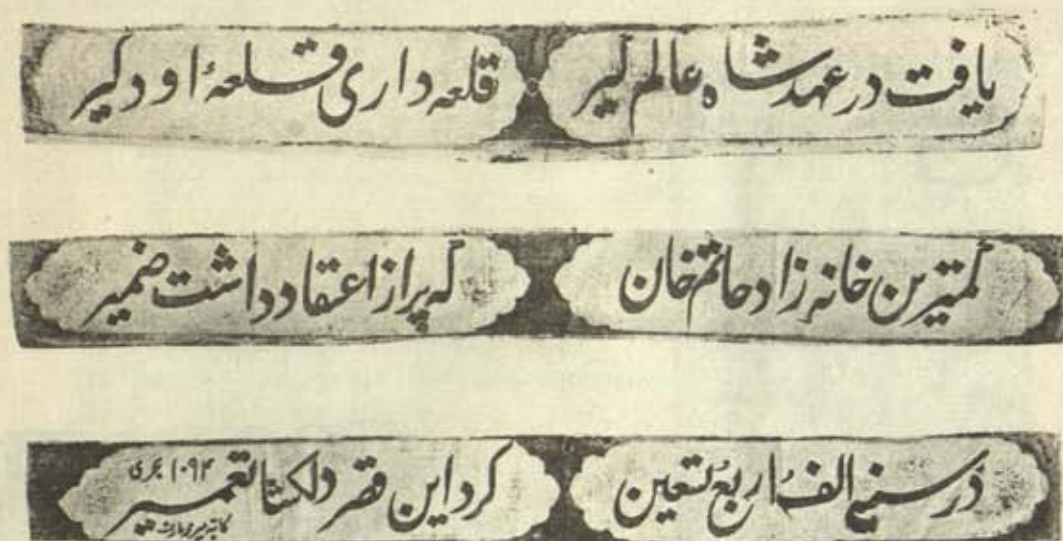 یافت در عهد شاه عالم گیر قلعه داری قلعهٔ اودگیر
کمترین خانه زاد حاتم خان که پر از اعتقاد داشت ضمیر
در سنهٔ الف اربع تسعین کرد این قصر دلکشا تعمیر
۱۰۹۴ هجری